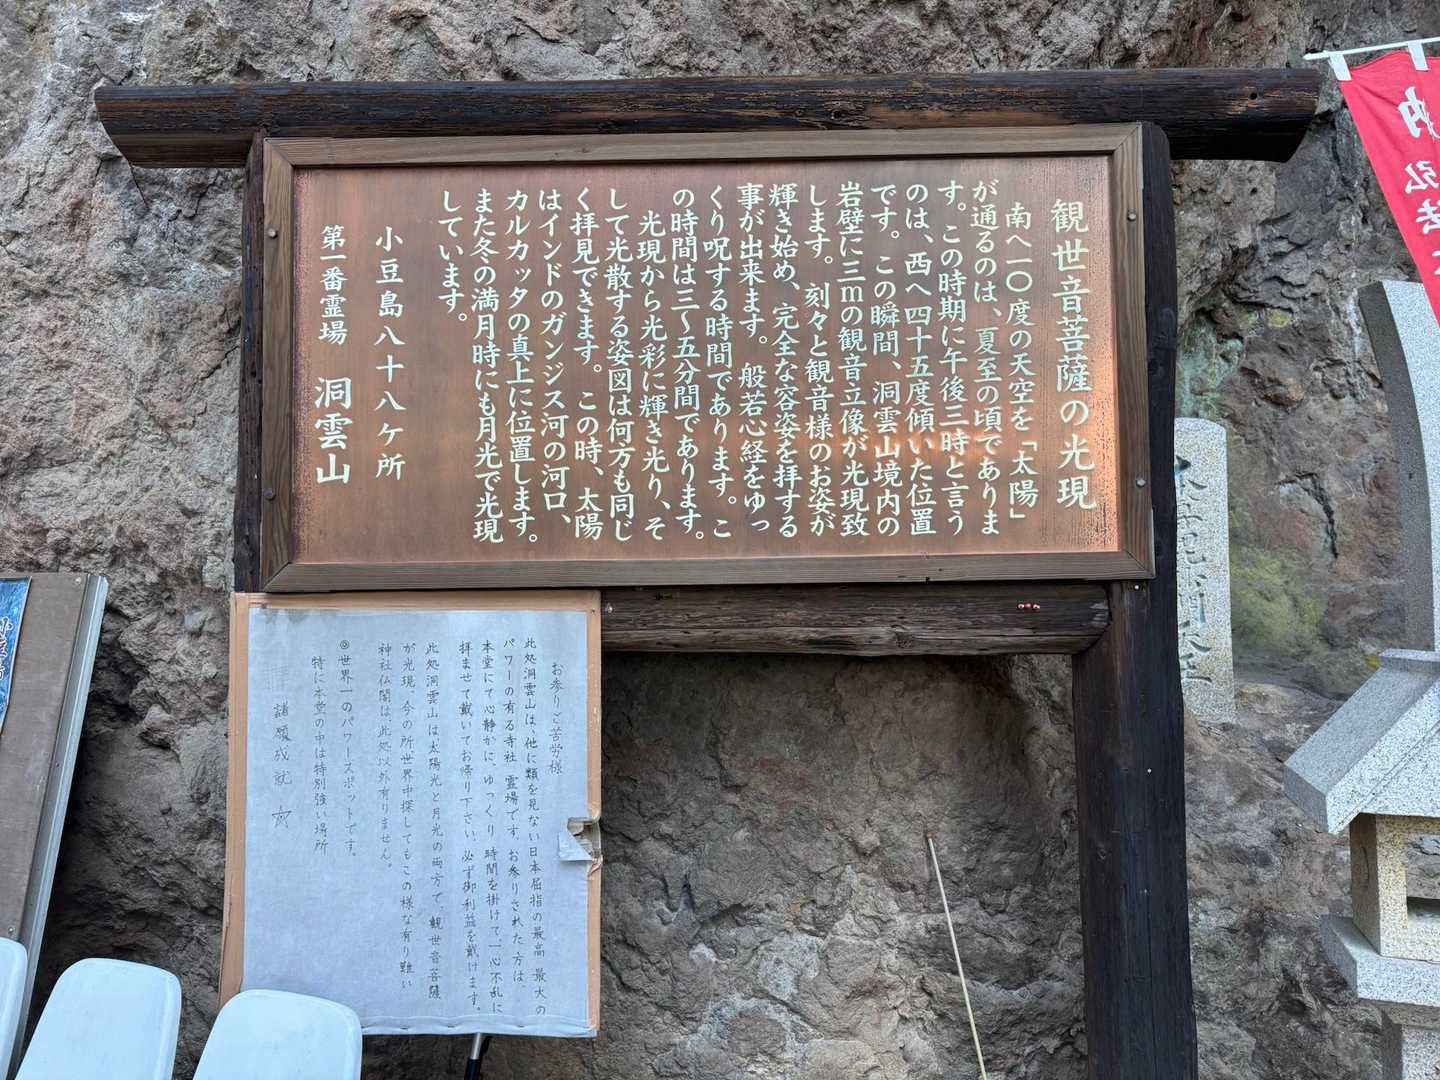 観世音菩薩の光現
南へ一〇度の天空を「太陽」
が通るのは、夏至の頃でありま
す。この時期に午後三時と言う
のは、西へ四十五度傾いた位置
です。この瞬間、洞雲山境内の
岩壁に三mの観音立像が光現致
します。刻々と観音様のお姿が
輝き始め、完全な容姿を拝する
事が出来ます。般若心経をゆっ
くり呪する時間であります。こ
の時間は三〜五分間であります。
光現から光彩に輝き光り、そ
して光散する姿図は何方も同じ
く拝見できます。この時、太陽
はインドのガンジス河の河口、
カルカッタの真上に位置します。
また冬の満月時にも月光で光現
しています。
小豆島八十八ヶ所
第一番霊場 洞雲山
お参りご苦労様
此処洞雲山は、他に類を見ない日本屈指の最高 最大の
パワーの有る寺社 霊場です。お参りされた方は
本堂にて心静かに、ゆっくり 時間を掛けて一心不乱に
拝ませて戴いてお帰り下さい。必ず御利益を戴けます。
此処洞雲山は太陽光と月光の両方で、観世音菩薩
が光現、今の所世界中探してもこの様な有り難い
神社仏閣は、此処以外有りません。
◎世界一のパワースポットです。
特に本堂の中は特別強い場所
諸願成就 ☆
納 弘法